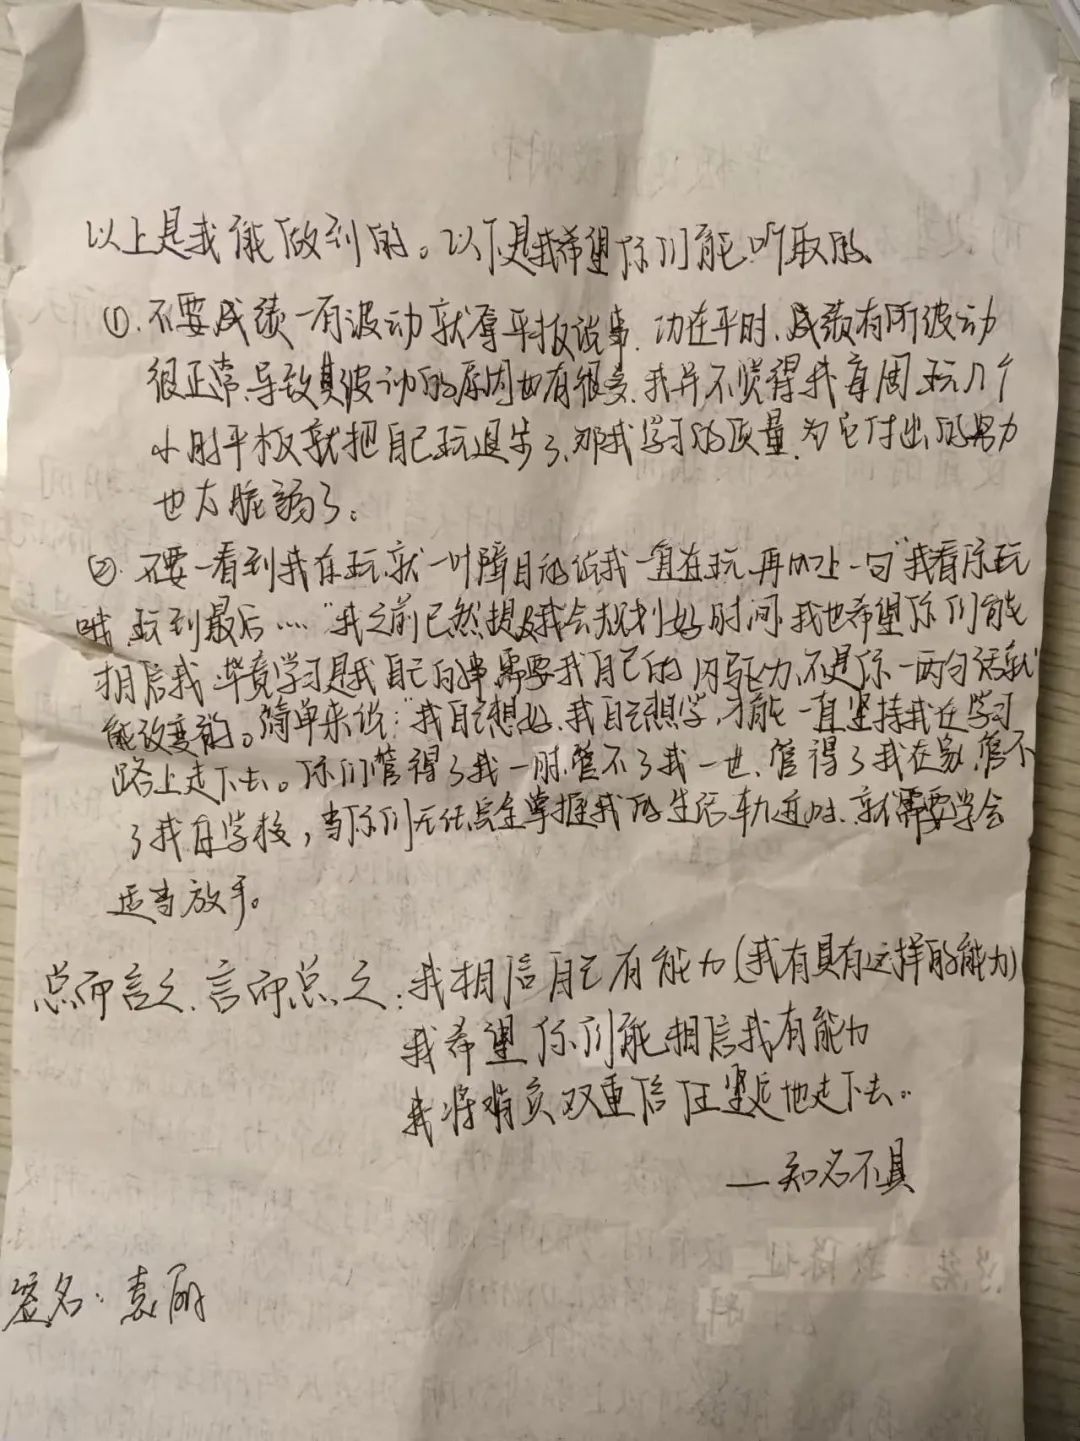 以上是我能做到的。以下是我希望你们能听取的
①.不要成绩一有波动就拿平板说事.功在平时、成绩有所波动
很正常,导致其波动的原因也有很多.我并不觉得我每周玩几个
小时平板就把自己玩退步了、那我学习的质量.为它付出的努力
也太脆弱了。
②.不要一看到我在玩就一叶障目的说我一直在玩.再加上一句"我看你玩
哦.玩到最后...."我之前已然提及我会规划好时间,我也希望你们能
相信我.毕竟学习是我自己的事需要我自己的内驱力、不是你一两句话就
能改变的。简单来说:"我自己想好、我自己想学,才能一直坚持我在学习
路上走下去。你们管得了我一时.管不了我一世、管得了我在家.管不
了我在学校,当你们无法完全掌握我的生活轨迹时、就需要学会
适当放手。
总而言之.言而总之:我相信自己有能力(我有具有这样的能力)
我希望你们能相信我有能力
我将背负双重信任坚定地走下去。
—知名不具
签名:袁丽